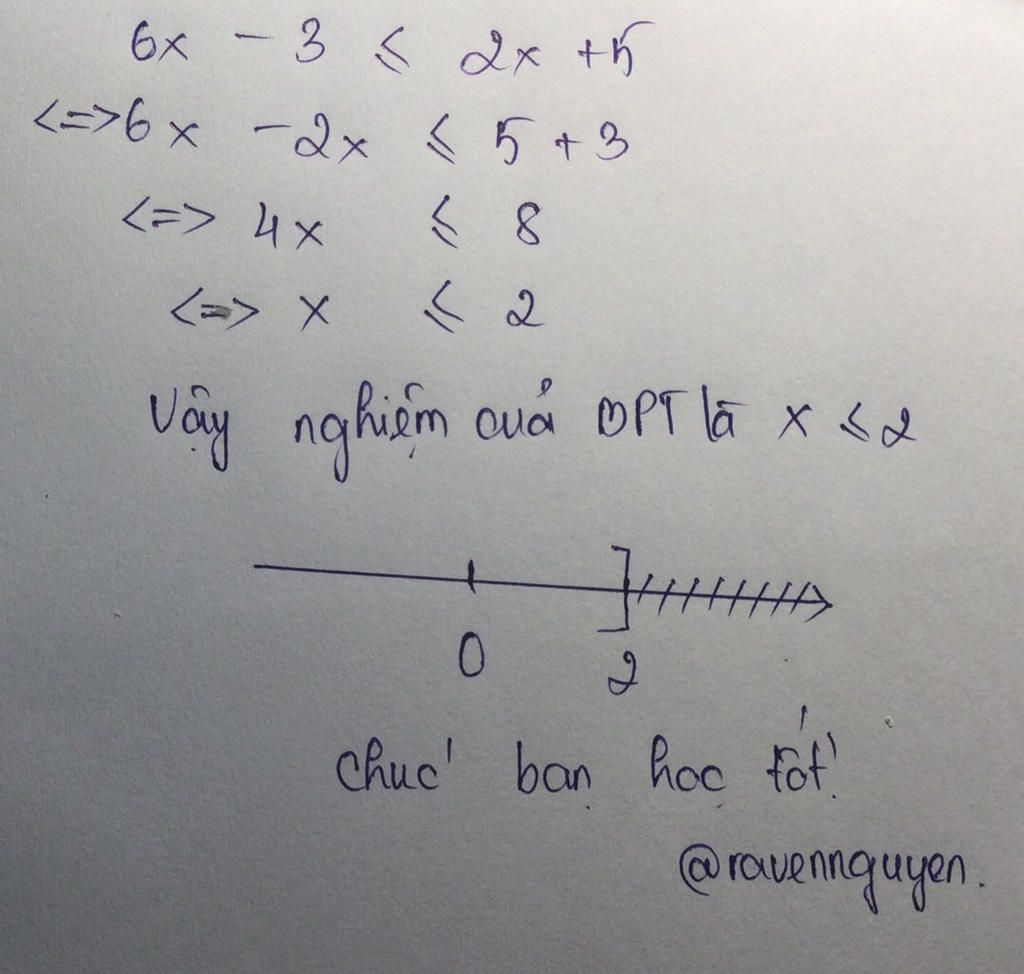 6x - 3 ≤ 2x + 5
<=> 6x - 2x ≤ 5 + 3
<=> 4x ≤ 8
<=> x ≤ 2
Vậy nghiệm cuả BPT là x ≤ 2
0 2
chuć bạn học tốt!
@ravennguyen.